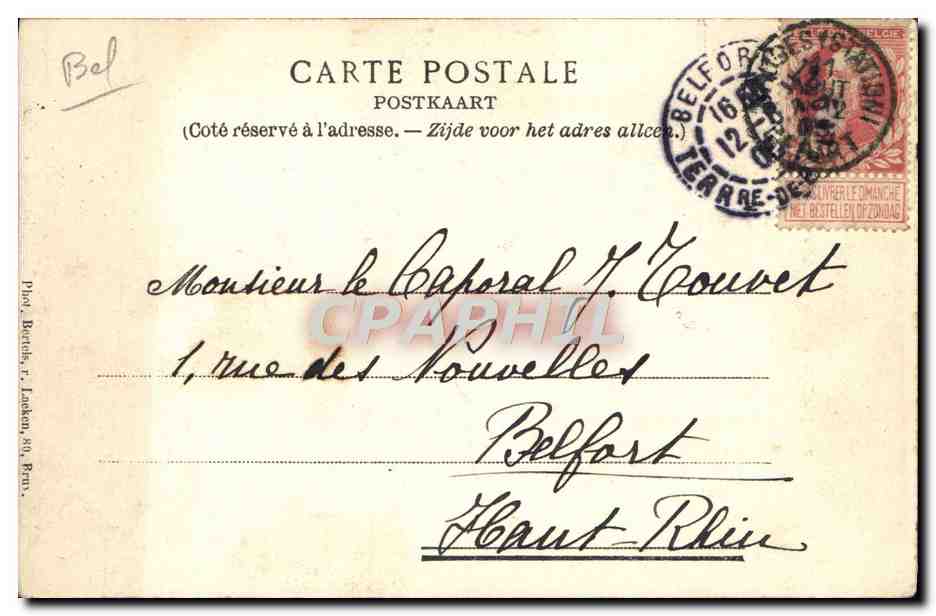 Bel
CARTE POSTALE
POSTKAART
(Coté réservé à l'adresse. — Zijde voor het adres alleen.)
BELFORT
16
12
TERRRE-DE
(STATION)
DEPART
BELGIE
LIVRER LE DIMANCHE
NIET BESTELLEN OP ZONDAG
Monsieur le Caporal J. Touvet
CPAPHIL
1, rue des Nouvelles
Belfort
Haut-Rhin
Phot. Bertels, r. Laeken, 80, Brux.